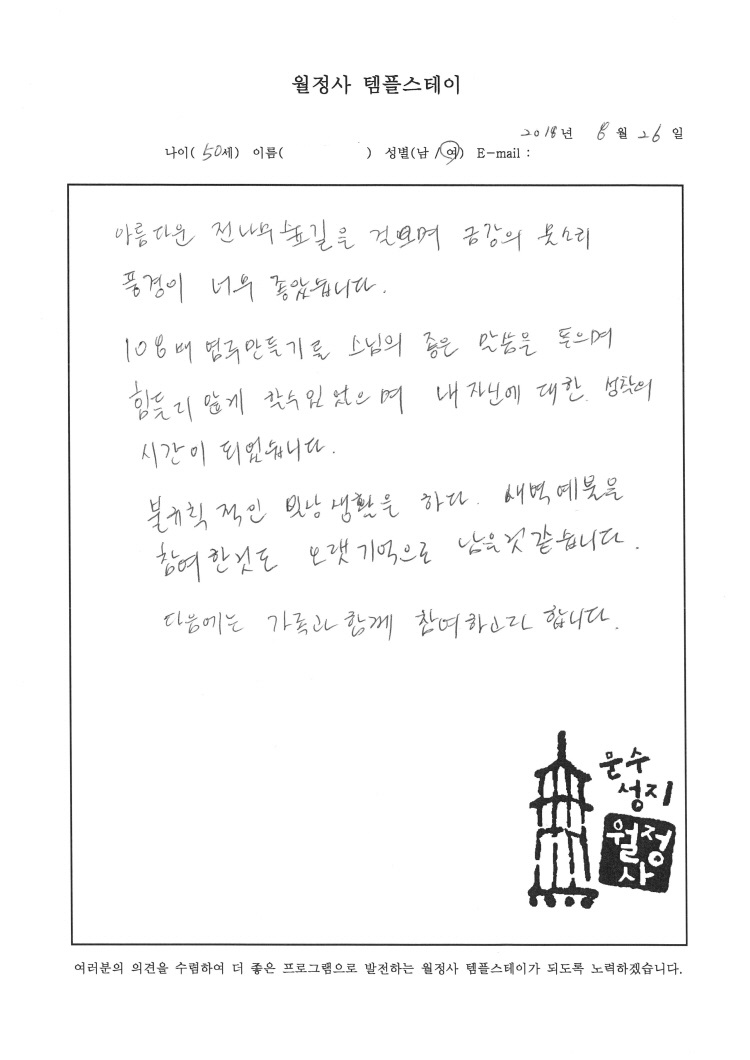 월정사 템플스테이
2018년 8월 26일
나이( 50세) 이름( ) 성별(남 / 여) E-mail :
아름다운 전나무숲길을 걸으며 금강의 물소리
풍경이 너무 좋았습니다.
108배 염주만들기를 스님의 좋은 말씀을 들으며
힘들지 않게 할수있었으며 내 자신에 대한 성찰의
시간이 되었습니다.
불규칙적인 일상생활을 하다. 새벽예불을
참여한것도 오랫기억으로 남을것같습니다.
다음에는 가족과함께 참여하고자 합니다.
문수
성지
월정
사
여러분의 의견을 수렴하여 더 좋은 프로그램으로 발전하는 월정사 템플스테이가 되도록 노력하겠습니다.